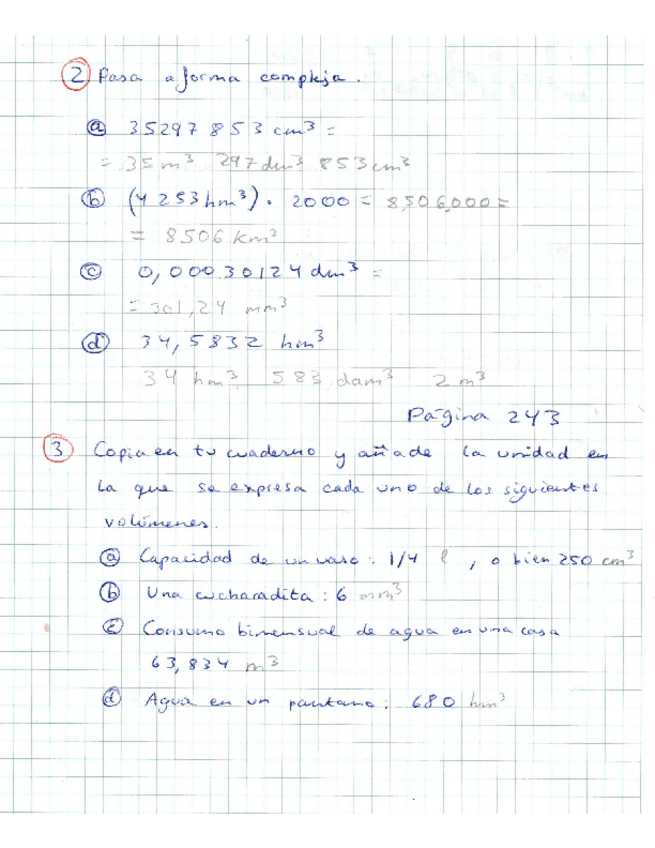 2 Pasa a forma compleja.
a 35297 853 cm³ =
= 35 m³ 297 dm³ 853 cm³
b (4 253 hm³) · 2000 = 8.506.000 =
= 8506 km³
c 0,00030124 dm³ =
= 301,24 mm³
d 34,5832 hm³
34 hm³ 583 dam³ 2 m³
Página 243
3 Copia en tu cuaderno y añade la unidad en
la que se expresa cada uno de los siguientes
volúmenes.
a Capacidad de un vaso: 1/4 l, o bien 250 cm³
b Una cucharadita: 6 mm³
c Consumo bimensual de agua en una casa
63,834 m³
d Agua en un pantano: 680 hm³